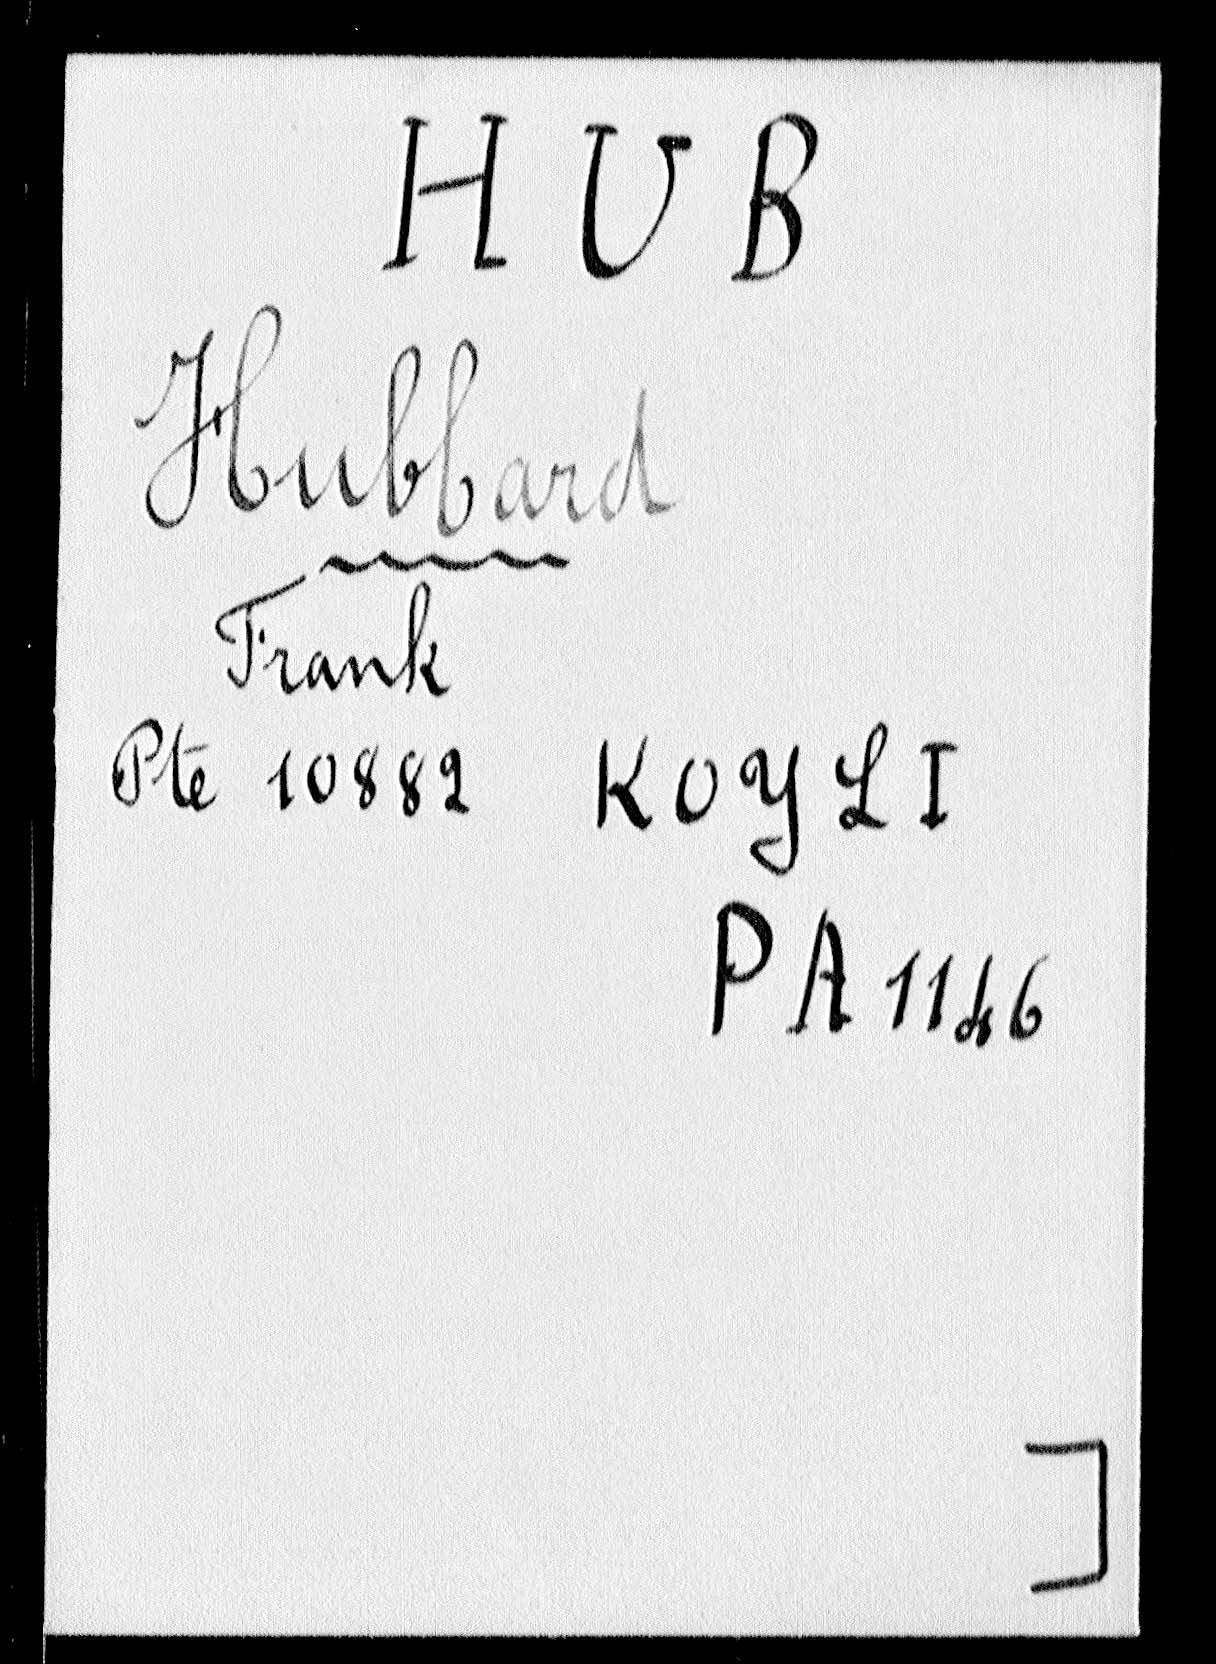 HUB
Hubbard
Frank
Pte 10882 KOYLI
PA 1146
]